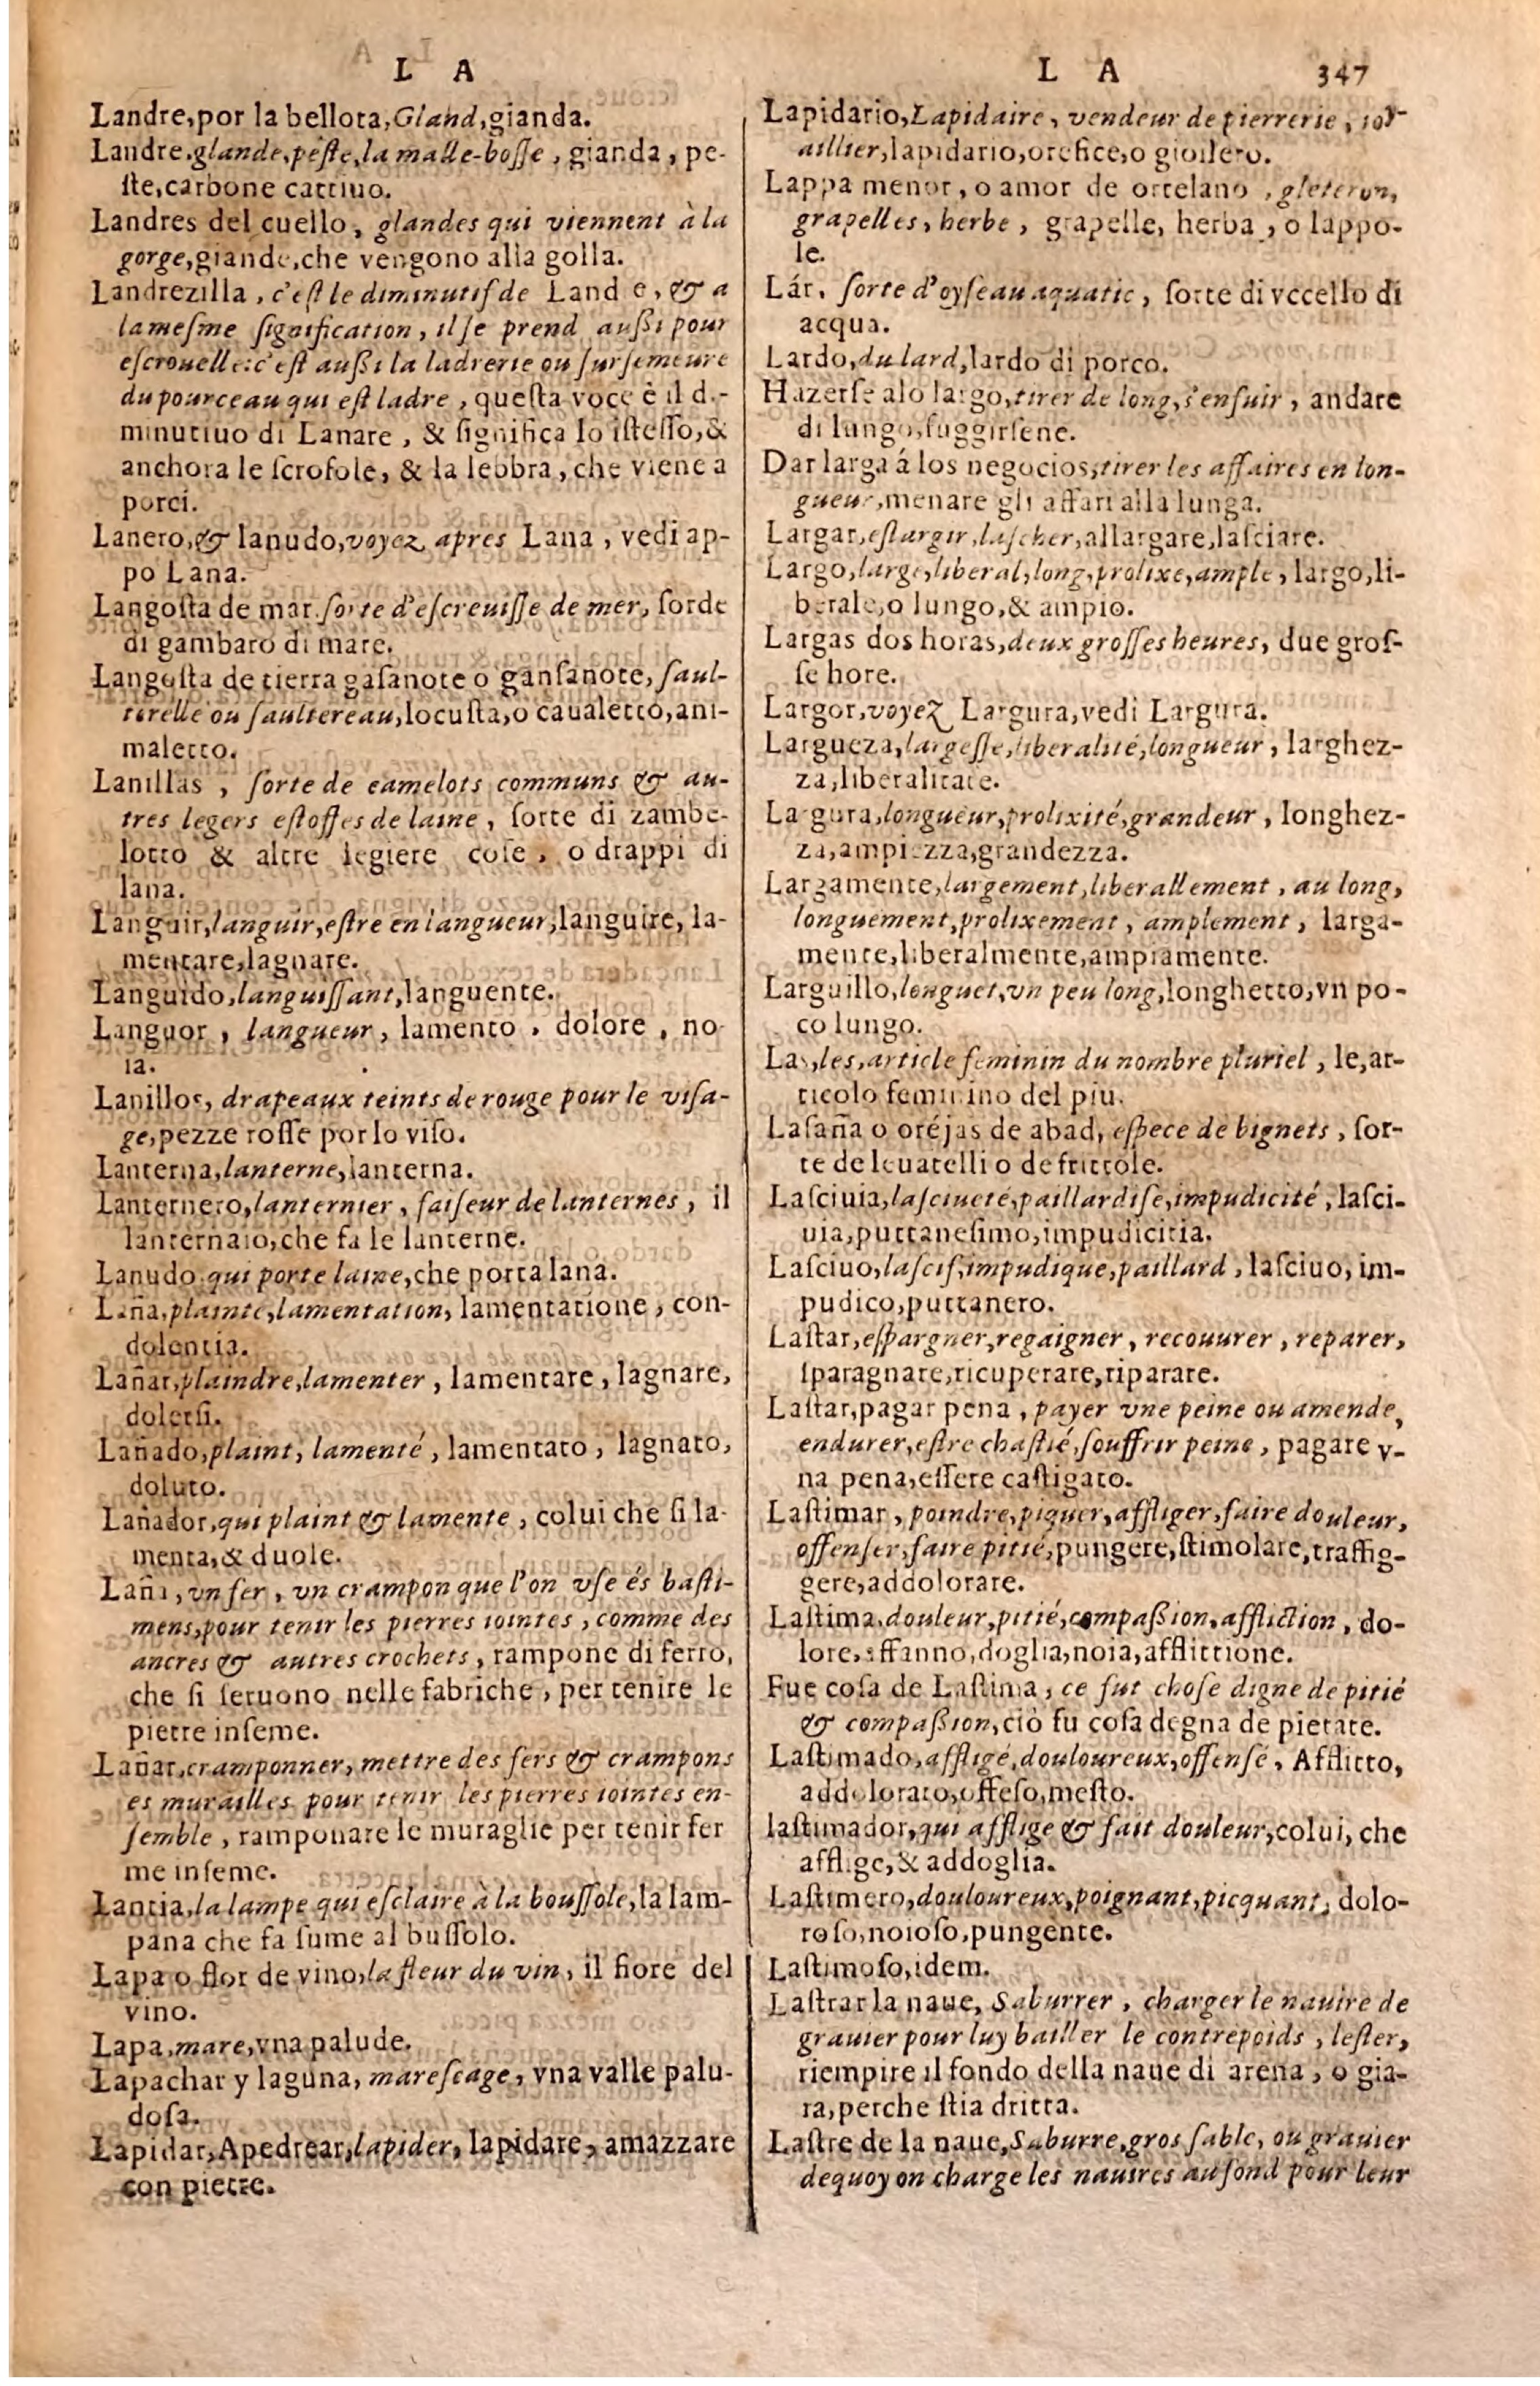 L A
Landre,por la bellota,Gland,gianda.
Landre,glande,peſte,la malle-boſſe, gianda, pe-
ſte,carbone cattiuo.
Landres del cuello, glandes qui viennent à la
gorge,giande,che vengono alla golla.
Landrezilla, c'eſt le diminutif de Land e, & a
la meſme ſignification, il ſe prend auſſi pour
eſcrouelle:c'eſt auſſi la ladrerie ou ſurſemeure
du pourceau qui eſt ladre, queſta voce è il di-
minutiuo di Lanare, & ſignifica lo iſteſſo,&
anchora le ſcrofole, & la lebbra, che viene a
porci.
Lanero,& lanudo,voyez apres Lana, vedi ap-
po Lana.
Langoſta de mar.ſorte d'eſcreuiſſe de mer, ſorde
di gambaro di mare.
Langoſta de tierra gaſanote o ganſanote, ſaul-
terelle ou ſaultereau,locuſta,o caualetto,ani-
maletto.
Lanillas, ſorte de camelots communs & au-
tres legers eſtoffes de laine, ſorte di zambe-
lotto & altre legiere coſe, o drappi di
lana.
Languir,languir,eſtre en langueur,languire, la-
mentare,lagnare.
Languido,languiſſant,languente.
Languor, langueur, lamento, dolore, no
ia.
Lanillos, drapeaux teints de rouge pour le viſa-
ge,pezze roſſe por lo viſo.
Lanterna,lanterne,lanterna.
Lanternero,lanternier, faiſeur de lanternes, il
lanternaio,che fa le lanterne.
Lanudo.qui porte laine,che porta lana.
Laña,plainte,lamentation, lamentatione, con-
dolentia.
Lañar,plaindre,lamenter, lamentare, lagnare,
dolerſi.
Lañado,plaint, lamenté, lamentato, lagnato,
doluto.
Lañador,qui plaint & lamente, colui che ſi la-
menta,& duole.
Laña, vn fer, vn crampon que l'on vſe és baſti-
mens,pour tenir les pierres iointes, comme des
ancres & autres crochets, rampone di ferro,
che ſi ſeruono nelle fabriche, per tenire le
pietre inſeme.
Lañar,cramponner, mettre des fers & crampons
es murailles pour tenir les pierres iointes en-
ſemble, ramponare le muraglie per tenir fer
me inſeme.
Lantia,la lampe qui eſclaire à la bouſſole,la lam-
pana che fa lume al buſſolo.
Lapa o flor de vino,la fleur du vin, il fiore del
vino.
Lapa,mare,vna palude.
Lapachar y laguna, mareſcage, vna valle palu-
doſa.
Lapidar,Apedrear,lapider, lapidare, amazzare
con pietre.
L A 347
Lapidario,Lapidaire, vendeur de pierrerie, ioy-
aillier,lapidario,orefice,o gioilero.
Lappa menor, o amor de ortelano, gleteron,
grapelles, herbe, grapelle, herba, o lappo-
le.
Lár, ſorte d'oyſeau aquatic, ſorte di vccello di
acqua.
Lardo,du lard,lardo di porco.
Hazerſe alo largo,tirer de long,s'enfuir, andare
di lungo,fuggirſene.
Dar larga á los negocios,tirer les affaires en lon-
gueur,menare gli affari alla lunga.
Largar,eſlargir,laſcher,allargare,laſciare.
Largo,large,liberal,long,prolixe,ample, largo,li-
berale,o lungo,& ampio.
Largas dos horas,deux groſſes heures, due groſ-
ſe hore.
Largor,voyez Largura,vedi Largura.
Largueza,largeſſe,liberalité,longueur, larghez-
za,liberalitate.
Largura,longueur,prolixité,grandeur, longhez-
za,ampiezza,grandezza.
Largamente,largement,liberallement, au long,
longuement,prolixement, amplement, larga-
mente,liberalmente,ampiamente.
Larguillo,longuet,vn peu long,longhetto,vn po-
co lungo.
Las,les,article feminin du nombre pluriel, le,ar-
ticolo feminino del piu.
Laſaña o oréjas de abad, eſpece de bignets, ſor-
te de leuatelli o de frittole.
Laſciuia,laſciueté,paillardiſe,impudicité, laſci-
uia,puttaneſimo,impudicitia.
Laſciuo,laſcif,impudique,paillard, laſciuo, im-
pudico,puttanero.
Laſtar,eſpargner,regaigner, recouurer, reparer,
ſparagnare,ricuperare,riparare.
Laſtar,pagar pena, payer vne peine ou amende,
endurer,eſtre chaſtié,ſouffrir peine, pagare v-
na pena,eſſere caſtigato.
Laſtimar, poindre,piquer,affliger,faire douleur,
offenſer,faire pitié,pungere,ſtimolare,traffig-
gere,addolorare.
Laſtima,douleur,pitié,compaſſion,affliction, do-
lore,affanno,doglia,noia,afflittione.
Fue coſa de Laſtima, ce fut choſe digne de pitié
& compaſſion,ciò fu coſa degna de pietate.
Laſtimado,affligé,douloureux,offenſé, Afflitto,
addolorato,offeſo,meſto.
laſtimador,qui afflige & fait douleur,colui, che
afflige,& addoglia.
Laſtimero,douloureux,poignant,picquant, dolo-
roſo,noioſo,pungente.
Laſtimoſo,idem.
Laſtrar la naue, Saburrer, charger le nauire de
grauier pour luy bailler le contrepoids, leſter,
riempire il fondo della naue di arena, o gia-
ra,perche ſtia dritta.
Laſtre de la naue,Saburre,gros ſable, ou grauier
dequoy on charge les nauires au fond pour leur